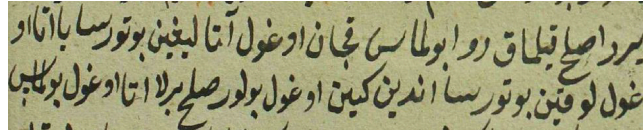 بیردا صلح قیلماق روا بولماس قچان اوغول آتالیغین بوتورسا یا اتا او
غول لوقین بوتورسا اندین کیین اوغول بولور صلح برلا اتا اوغول بولماس